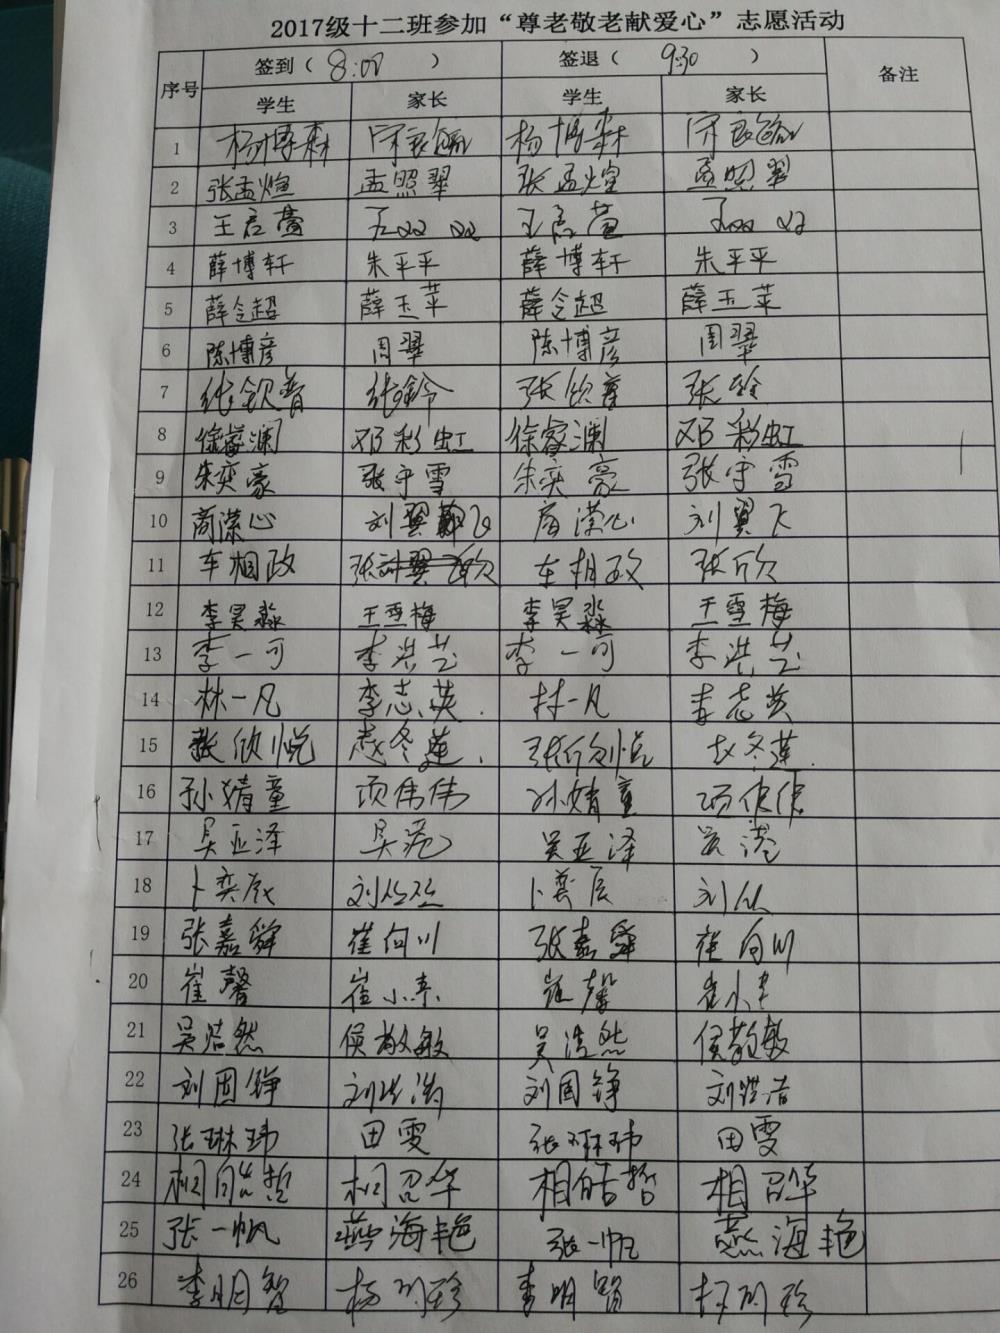 2017级十二班参加“尊老敬老献爱心”志愿活动
序号 签到（ 8:00 ） 签退（ 9:30 ） 备注
学生 家长 学生 家长
1 杨博森 杨博森
2 张孟煊 孟照翠 张孟煊 孟照翠
3 王启萱 王启萱
4 薛博轩 朱平平 薛博轩 朱平平
5 薛令超 薛玉苹 薛令超 薛玉苹
6 陈博彦 周翠 陈博彦 周翠
7 张钦普 张铃 张钦普 张铃
8 徐睿渊 邓彩虹 徐睿渊 邓彩虹
9 朱奕豪 张守雪 朱奕豪 张守雪
10 商滢心 刘翼飞 商滢心 刘翼飞
11 车相政 张欣 车相政 张欣
12 李昊淼 王雪梅 李昊淼 王雪梅
13 李一可 李洪芝 李一可 李洪芝
14 林一凡 李志英 林一凡 李志英
15 张欣悦 赵冬莲 张欣悦 赵冬莲
16 孙婧童 项伟伟 孙婧童 项伟伟
17 吴亚泽 吴亚泽
18 卜奕辰 刘丝丝 卜奕辰
19 张嘉舜 崔向川 张嘉舜 崔向川
20 崔馨 崔小东 崔馨 崔小东
21 吴浩然 侯敬敏 吴浩然 侯敬敏
22 刘国铮 刘洪涛 刘国铮
23 张琳玮 田雯 张琳玮 田雯
24 相皓哲 相召华 相皓哲 相召华
25 张一帆 燕海艳 张一帆 燕海艳
26 李明智 李明智